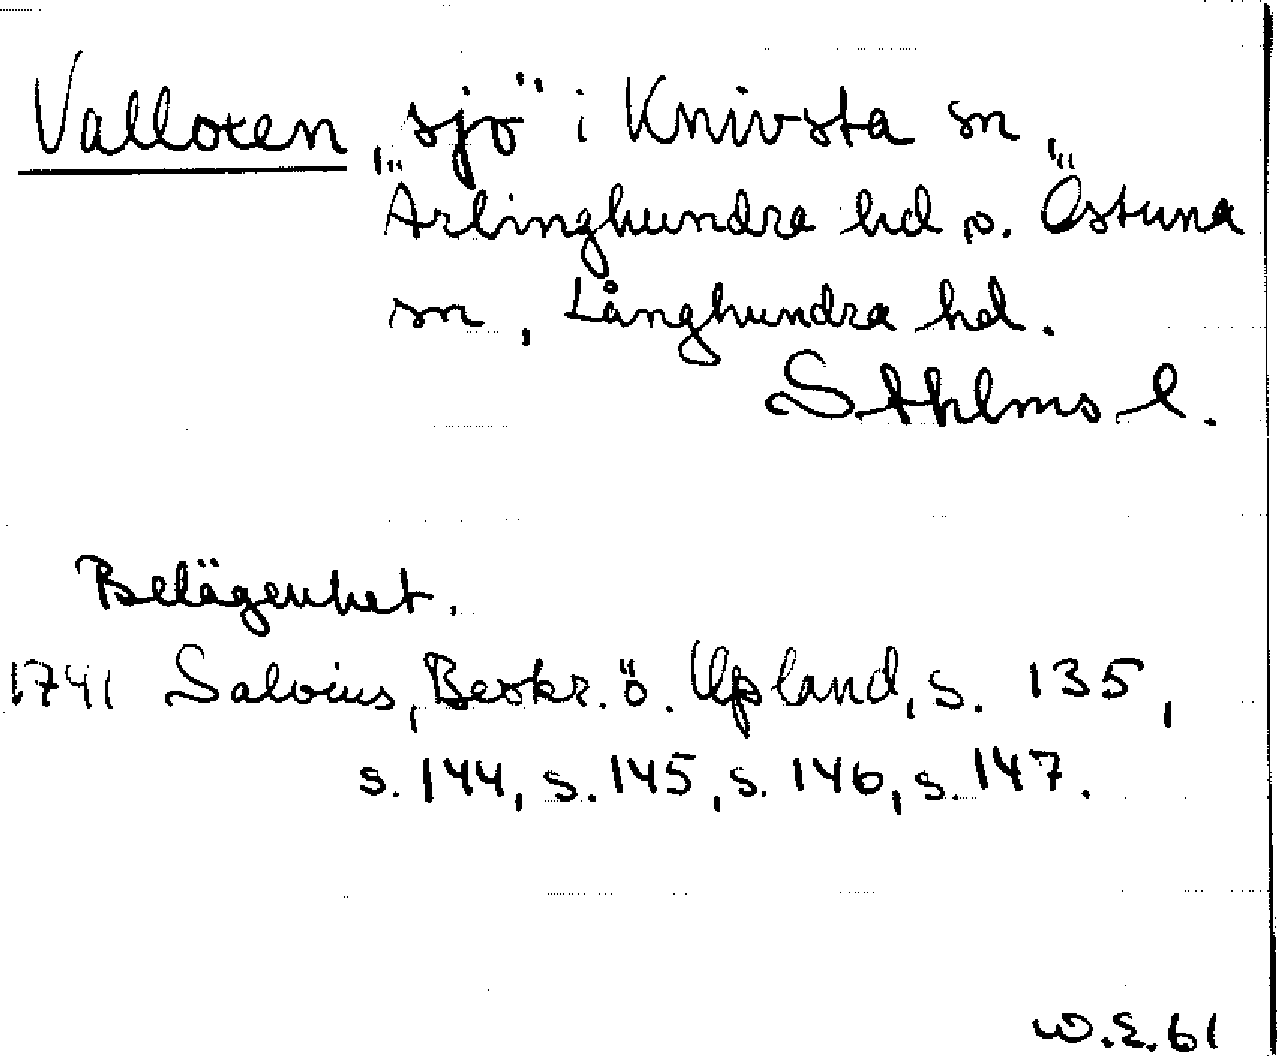 Valloxen, sjö i Knivsta sn,
Ärlinghundra hd o. Östuna
sn, Långhundra hd.
Sthlms l.
Belägenhet.
1741 Salvius, Beskr. ö. Upland, s. 135,
s. 144, s. 145, s. 146, s. 147.
W.E. 61